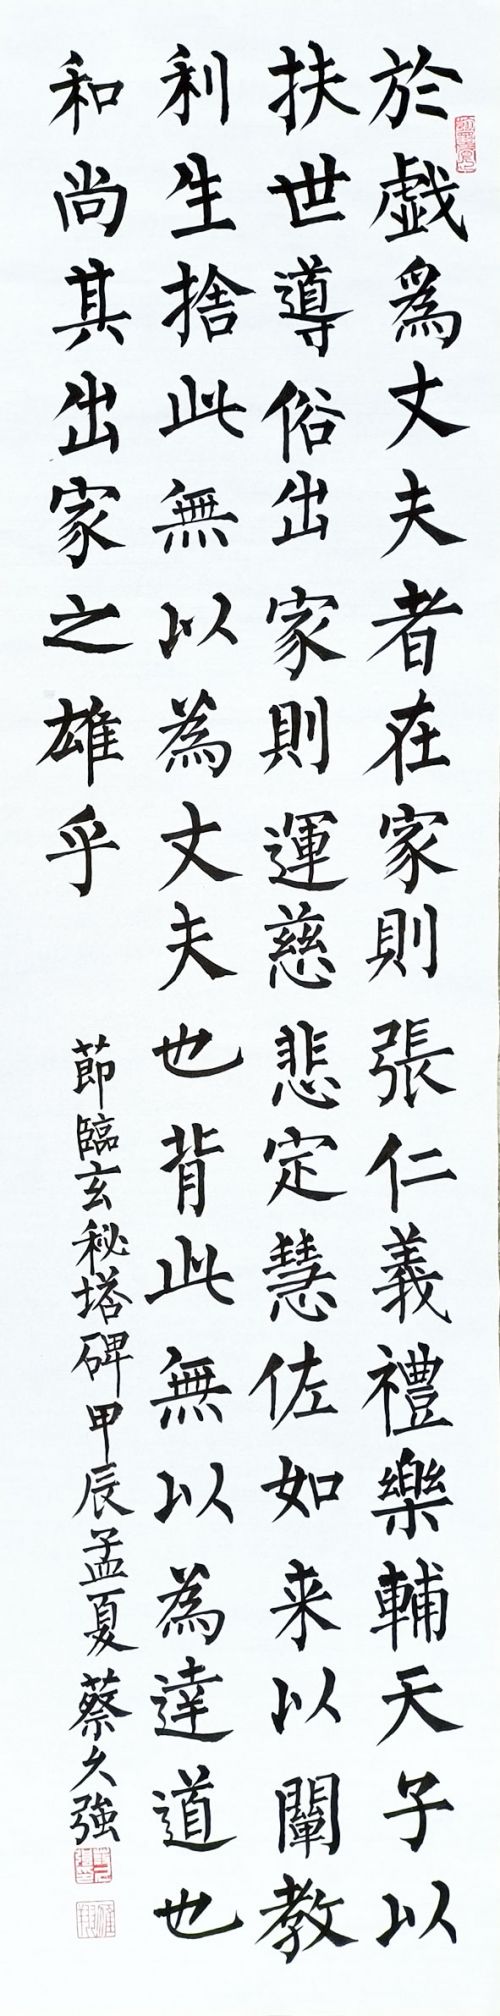 於戲為丈夫者在家則張仁義禮樂輔天子以
扶世導俗出家則運慈悲定慧佐如来以闡教
利生捨此無以為丈夫也背此無以為達道也
和尚其出家之雄乎
節臨玄秘塔碑甲辰孟夏蔡久強